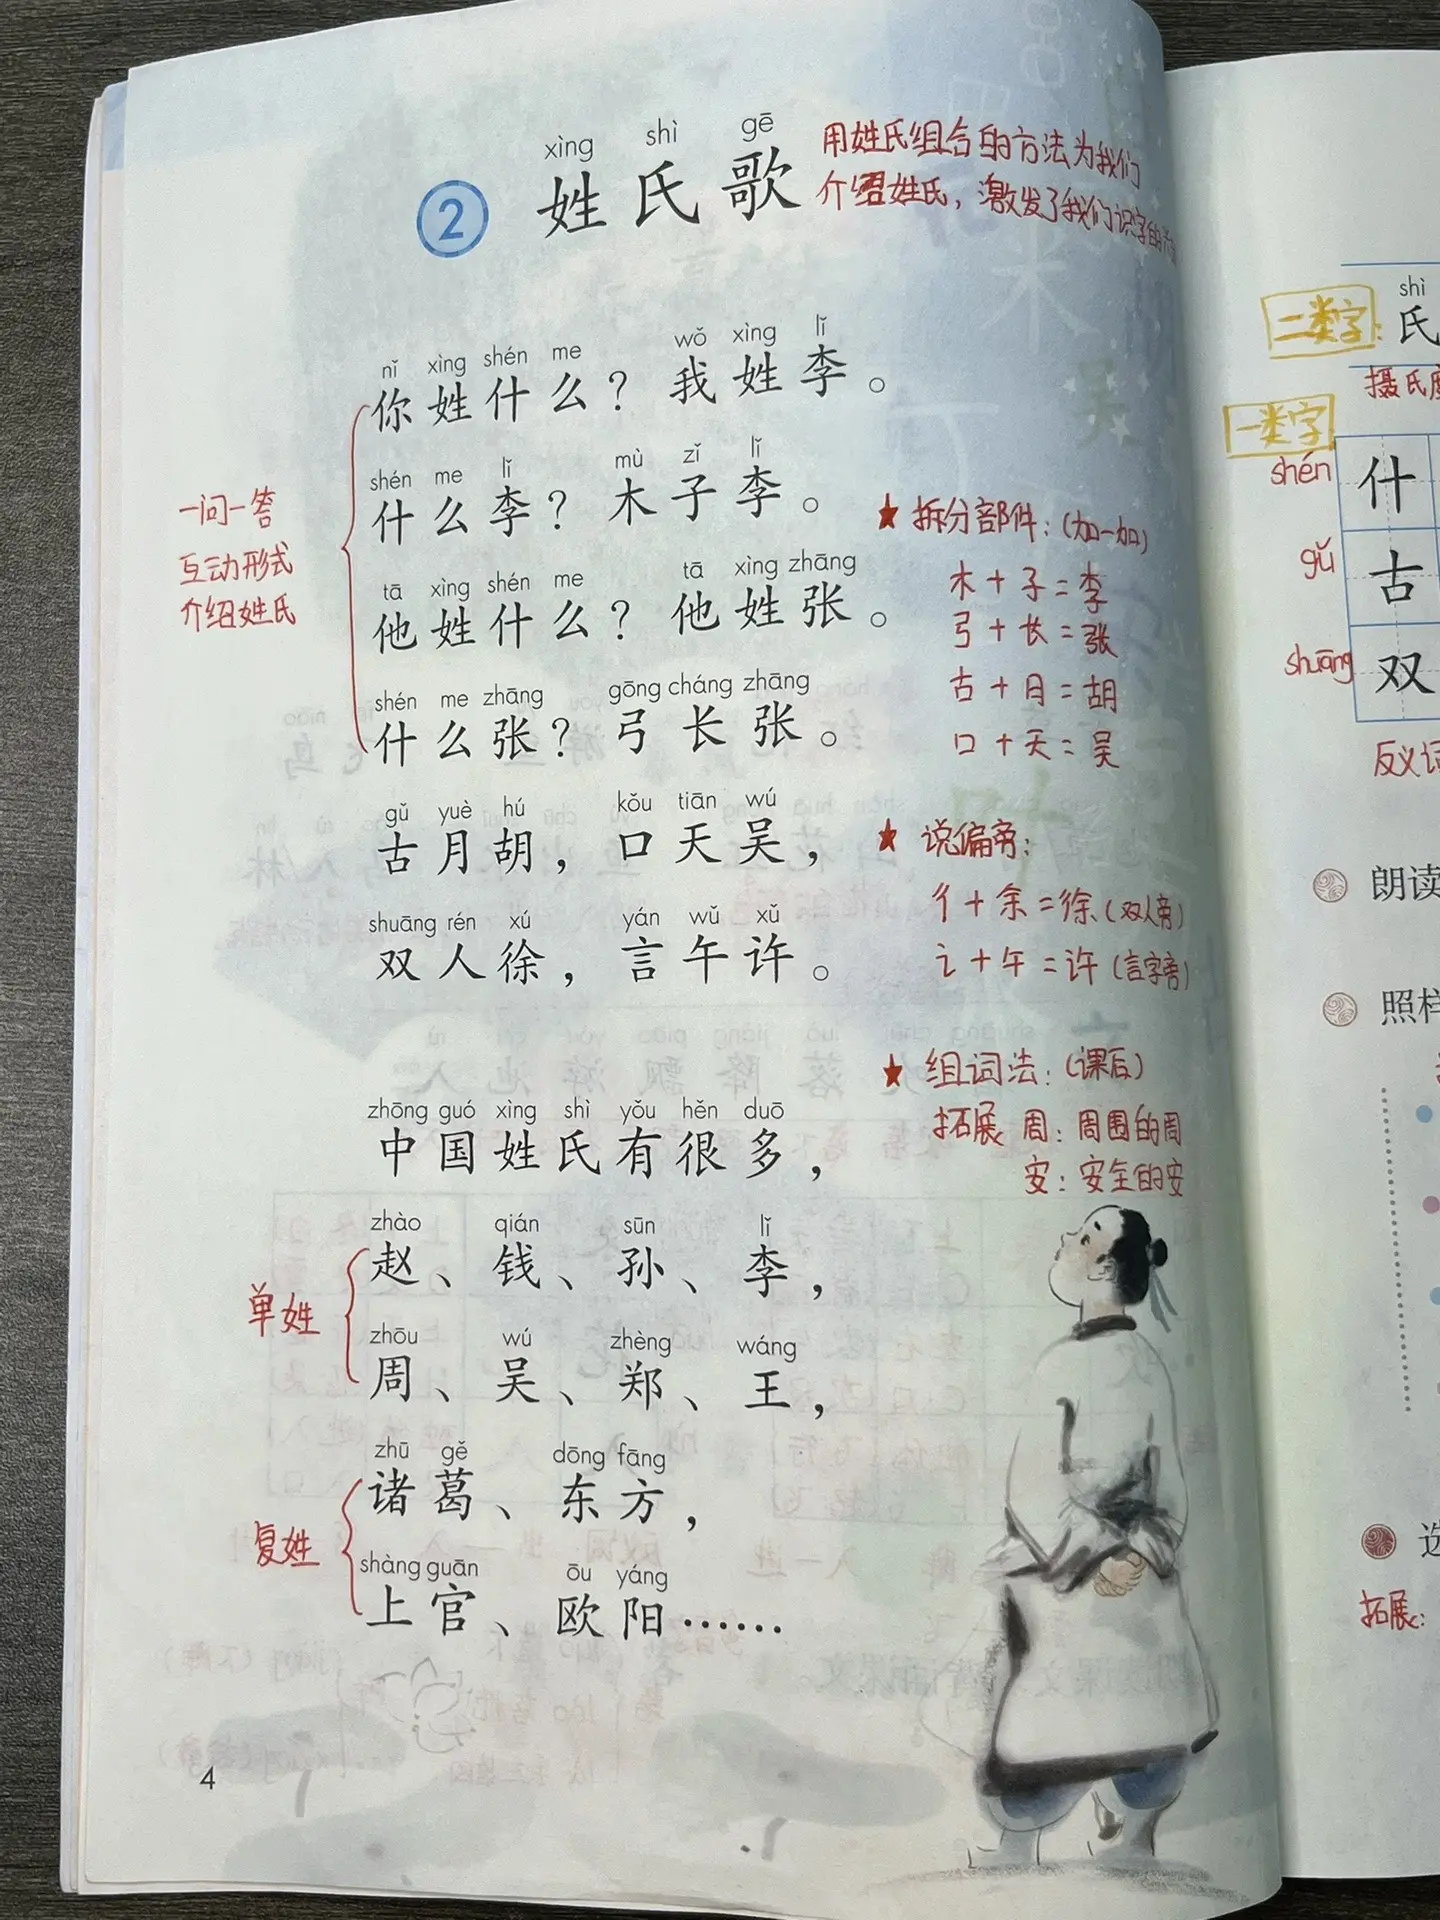 xìng shì gē
2 姓氏歌
用姓氏组合的方法为我们
介绍姓氏，激发了我们识字的
nǐ xìng shén me wǒ xìng lǐ
你姓什么？我姓李。
shén me lǐ mù zǐ lǐ
什么李？木子李。
tā xìng shén me tā xìng zhāng
他姓什么？他姓张。
shén me zhāng gōng cháng zhāng
什么张？弓长张。
一问一答
互动形式
介绍姓氏
gǔ yuè hú kǒu tiān wú
古月胡，口天吴，
shuāng rén xú yán wǔ xǔ
双人徐，言午许。
zhōng guó xìng shì yǒu hěn duō
中国姓氏有很多，
zhào qián sūn lǐ
赵、钱、孙、李，
zhōu wú zhèng wáng
周、吴、郑、王，
单姓
zhū gě dōng fāng
诸葛、东方，
shàng guān ōu yáng
上官、欧阳……
复姓
★拆分部件：(加一加)
木＋子＝李
弓＋长＝张
古＋月＝胡
口＋天＝吴
★说偏旁：
彳＋余＝徐(双人旁)
讠＋午＝许(言字旁)
★组词法：(课后)
拓展 周：周围的周
安：安全的安
4
shì
二类字：氏
摄氏
一类字
shén 什
gǔ 古
shuāng 双
反义词
朗读
照样
选
拓展：